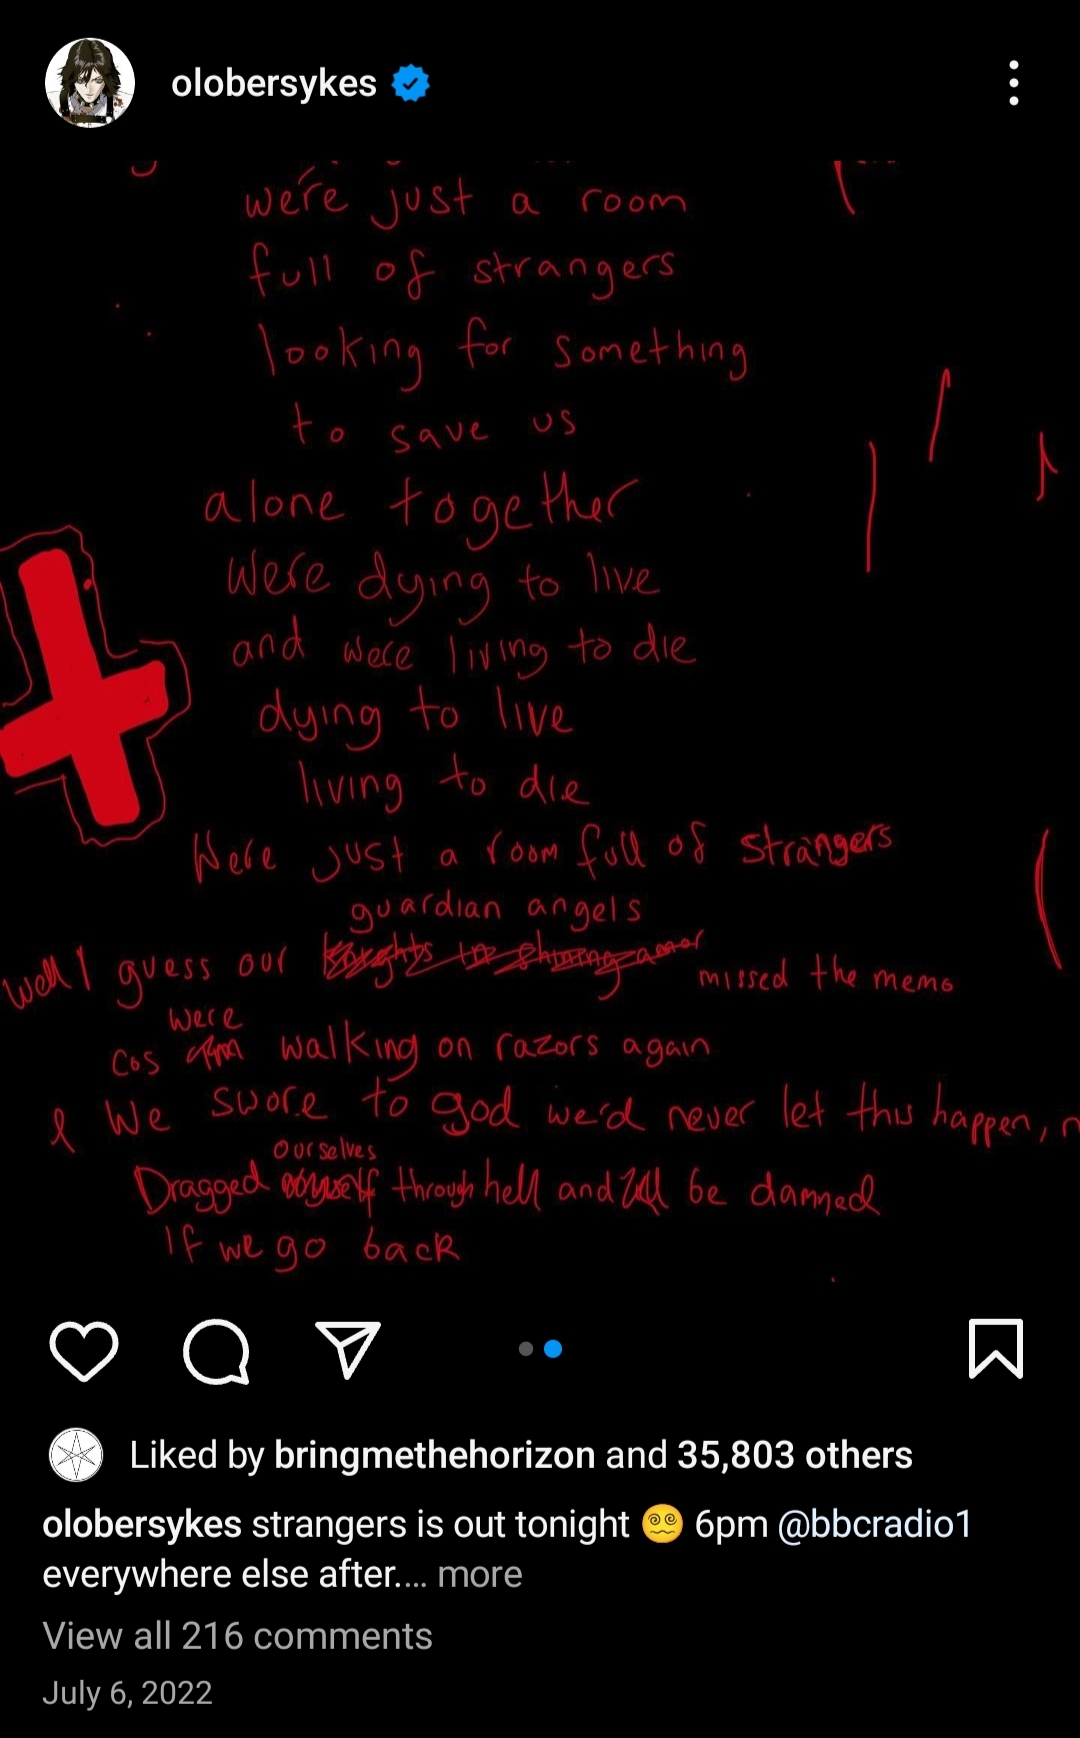 olobersykes
we're just a room
full of strangers
looking for something
to save us
alone together
were dying to live
and were living to die
dying to live
living to die
Were just a room full of strangers
guardian angels
well I guess our knights in shining armor missed the memo
were
cos I'm walking on razors again
& We swore to god we'd never let this happen, n
ourselves
Dragged myself through hell and I'll be damned
If we go back
Liked by bringmethehorizon and 35,803 others
olobersykes strangers is out tonight 😵‍💫 6pm @bbcradio1
everywhere else after.... more
View all 216 comments
July 6, 2022